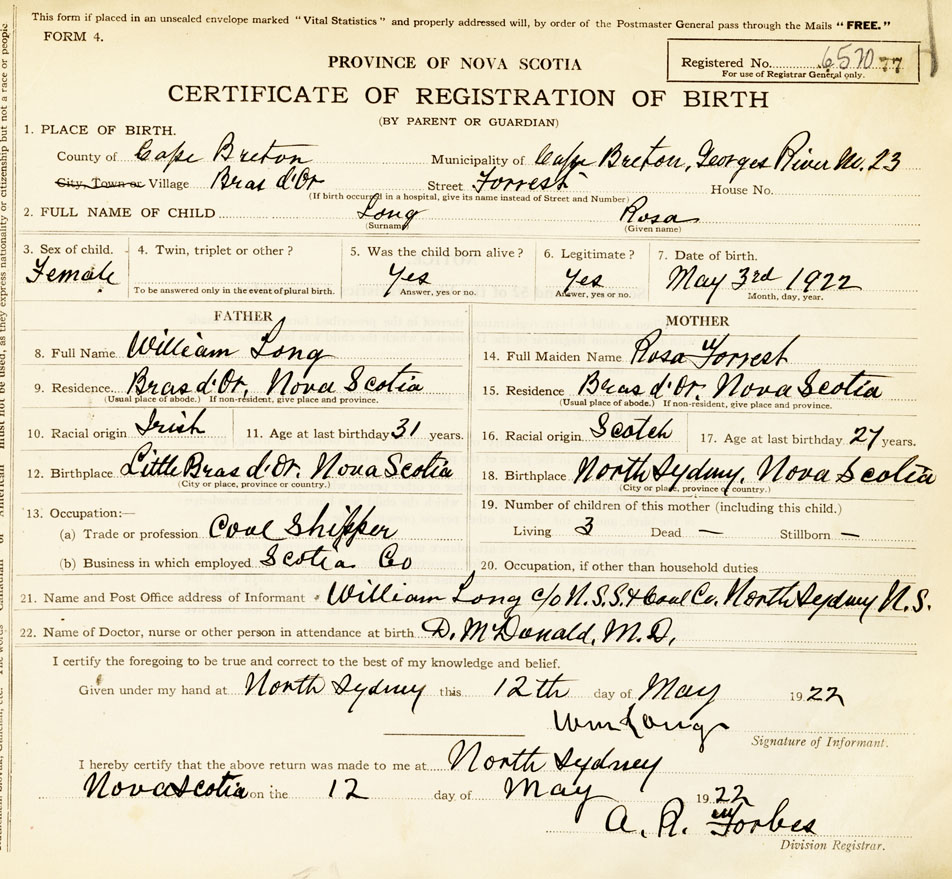 This form if placed in an unsealed envelope marked "Vital Statistics" and properly addressed will, by order of the Postmaster General pass through the Mails "FREE."
FORM 4.
Registered No. 6570 77
For use of Registrar General only.
PROVINCE OF NOVA SCOTIA
CERTIFICATE OF REGISTRATION OF BIRTH
(BY PARENT OR GUARDIAN)
1. PLACE OF BIRTH.
County of Cape Breton Municipality of Cape Breton, Georges River No. 23
City, Town or Village Bras d'Or Street Forrest House No.
(If birth occurred in a hospital, give its name instead of Street and Number)
2. FULL NAME OF CHILD Long Rosa
(Surname) (Given name)
3. Sex of child. 4. Twin, triplet or other? 5. Was the child born alive? 6. Legitimate? 7. Date of birth.
Female Yes Yes May 3rd 1922
To be answered only in the event of plural birth. Answer, yes or no. Answer, yes or no. Month, day, year.
FATHER MOTHER
8. Full Name William Long 14. Full Maiden Name Rosa Forrest
9. Residence Bras d'Or, Nova Scotia 15. Residence Bras d'Or, Nova Scotia
(Usual place of abode.) If non-resident, give place and province. (Usual place of abode.) If non-resident, give place and province.
10. Racial origin Irish 11. Age at last birthday 31 years. 16. Racial origin Scotch 17. Age at last birthday 27 years.
12. Birthplace Little Bras d'Or, Nova Scotia 18. Birthplace North Sydney, Nova Scotia
(City or place, province or country.) (City or place, province or country.)
13. Occupation:— 19. Number of children of this mother (including this child.)
(a) Trade or profession Coal Shipper Living 3 Dead — Stillborn —
(b) Business in which employed Scotia Co 20. Occupation, if other than household duties
21. Name and Post Office address of Informant William Long c/o N.S.S. & Coal Co. North Sydney N.S.
22. Name of Doctor, nurse or other person in attendance at birth D. McDonald, M.D.
I certify the foregoing to be true and correct to the best of my knowledge and belief.
Given under my hand at North Sydney this 12th day of May 1922
Wm Long
Signature of Informant.
I hereby certify that the above return was made to me at North Sydney
Nova Scotia on the 12 day of May 1922
A. R. Forbes
Division Registrar.